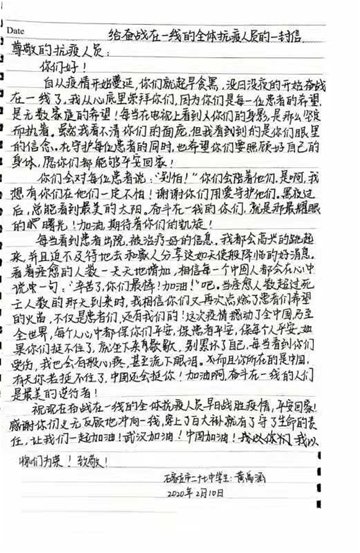 Date
给奋战在一线的全体抗疫人员的一封信
尊敬的抗疫人员：
你们好！
自从疫情开始蔓延，你们就起早贪黑，没日没夜的开始奋战
在一线了。我从心底里崇拜你们，因为你们是每一位患者的希望，
是无数家庭的希望！每当在电视上看到人们的身影，是那么坚定
而执着。虽然我看不清你们的面庞，但我看到到的是你们眼里
的信念。在守护每位患者的同时，也希望你们要照顾好自己的
身体，愿你们都能够平安回家！
你们会对每位患者说："别怕！"你们会陪着他们，是啊，我
想有你们在他们一定不怕！谢谢你们用爱守护他们。黑夜过
后，总能看到最美的太阳。奋斗在一线的你们，就是那最耀眼
的曙光！加油，期待着你们的凯旋！
每当看到患者出院，被治疗好的信息。我都会高兴的跳起
来，并且迫不及待地去和家人分享这如天使般降临的好消息。
看着痊愈的人数一天天地增加，相信每一个中国人都会在心中
说一句："辛苦了，你们最棒！加油！"吧。当痊愈人数超过死
亡人数的那天到来时，我相信你们又再次点燃了患者们希望
的火苗，不仅是患者们，还有我们的！这次疫情撼动了全中国乃至
全世界，每个人心中都保你们平安，保患者平安，保每个人平安。如
果你们挺不住了，就坐下来歇歇，别累坏了自己。每当看到你们
受伤，我也会有般心疼，甚至流下眼泪。为而且你所在的是中国，
有天你若挺不住了，中国还会挺你！加油啊，奋斗在一线的人们
是最美的逆行者！
祝愿在奋战在一线的全体抗疫人员早日战胜疫情，平安回家！
感谢你们义无反顾地冲向一线，穿上了白大褂就有了守了生命的责
任，让我们一起加油！武汉加油！中国加油！我以你们，我以
你们为荣！致敬！
石家庄市二十七中学生：黄禹涵
2020年2月10日